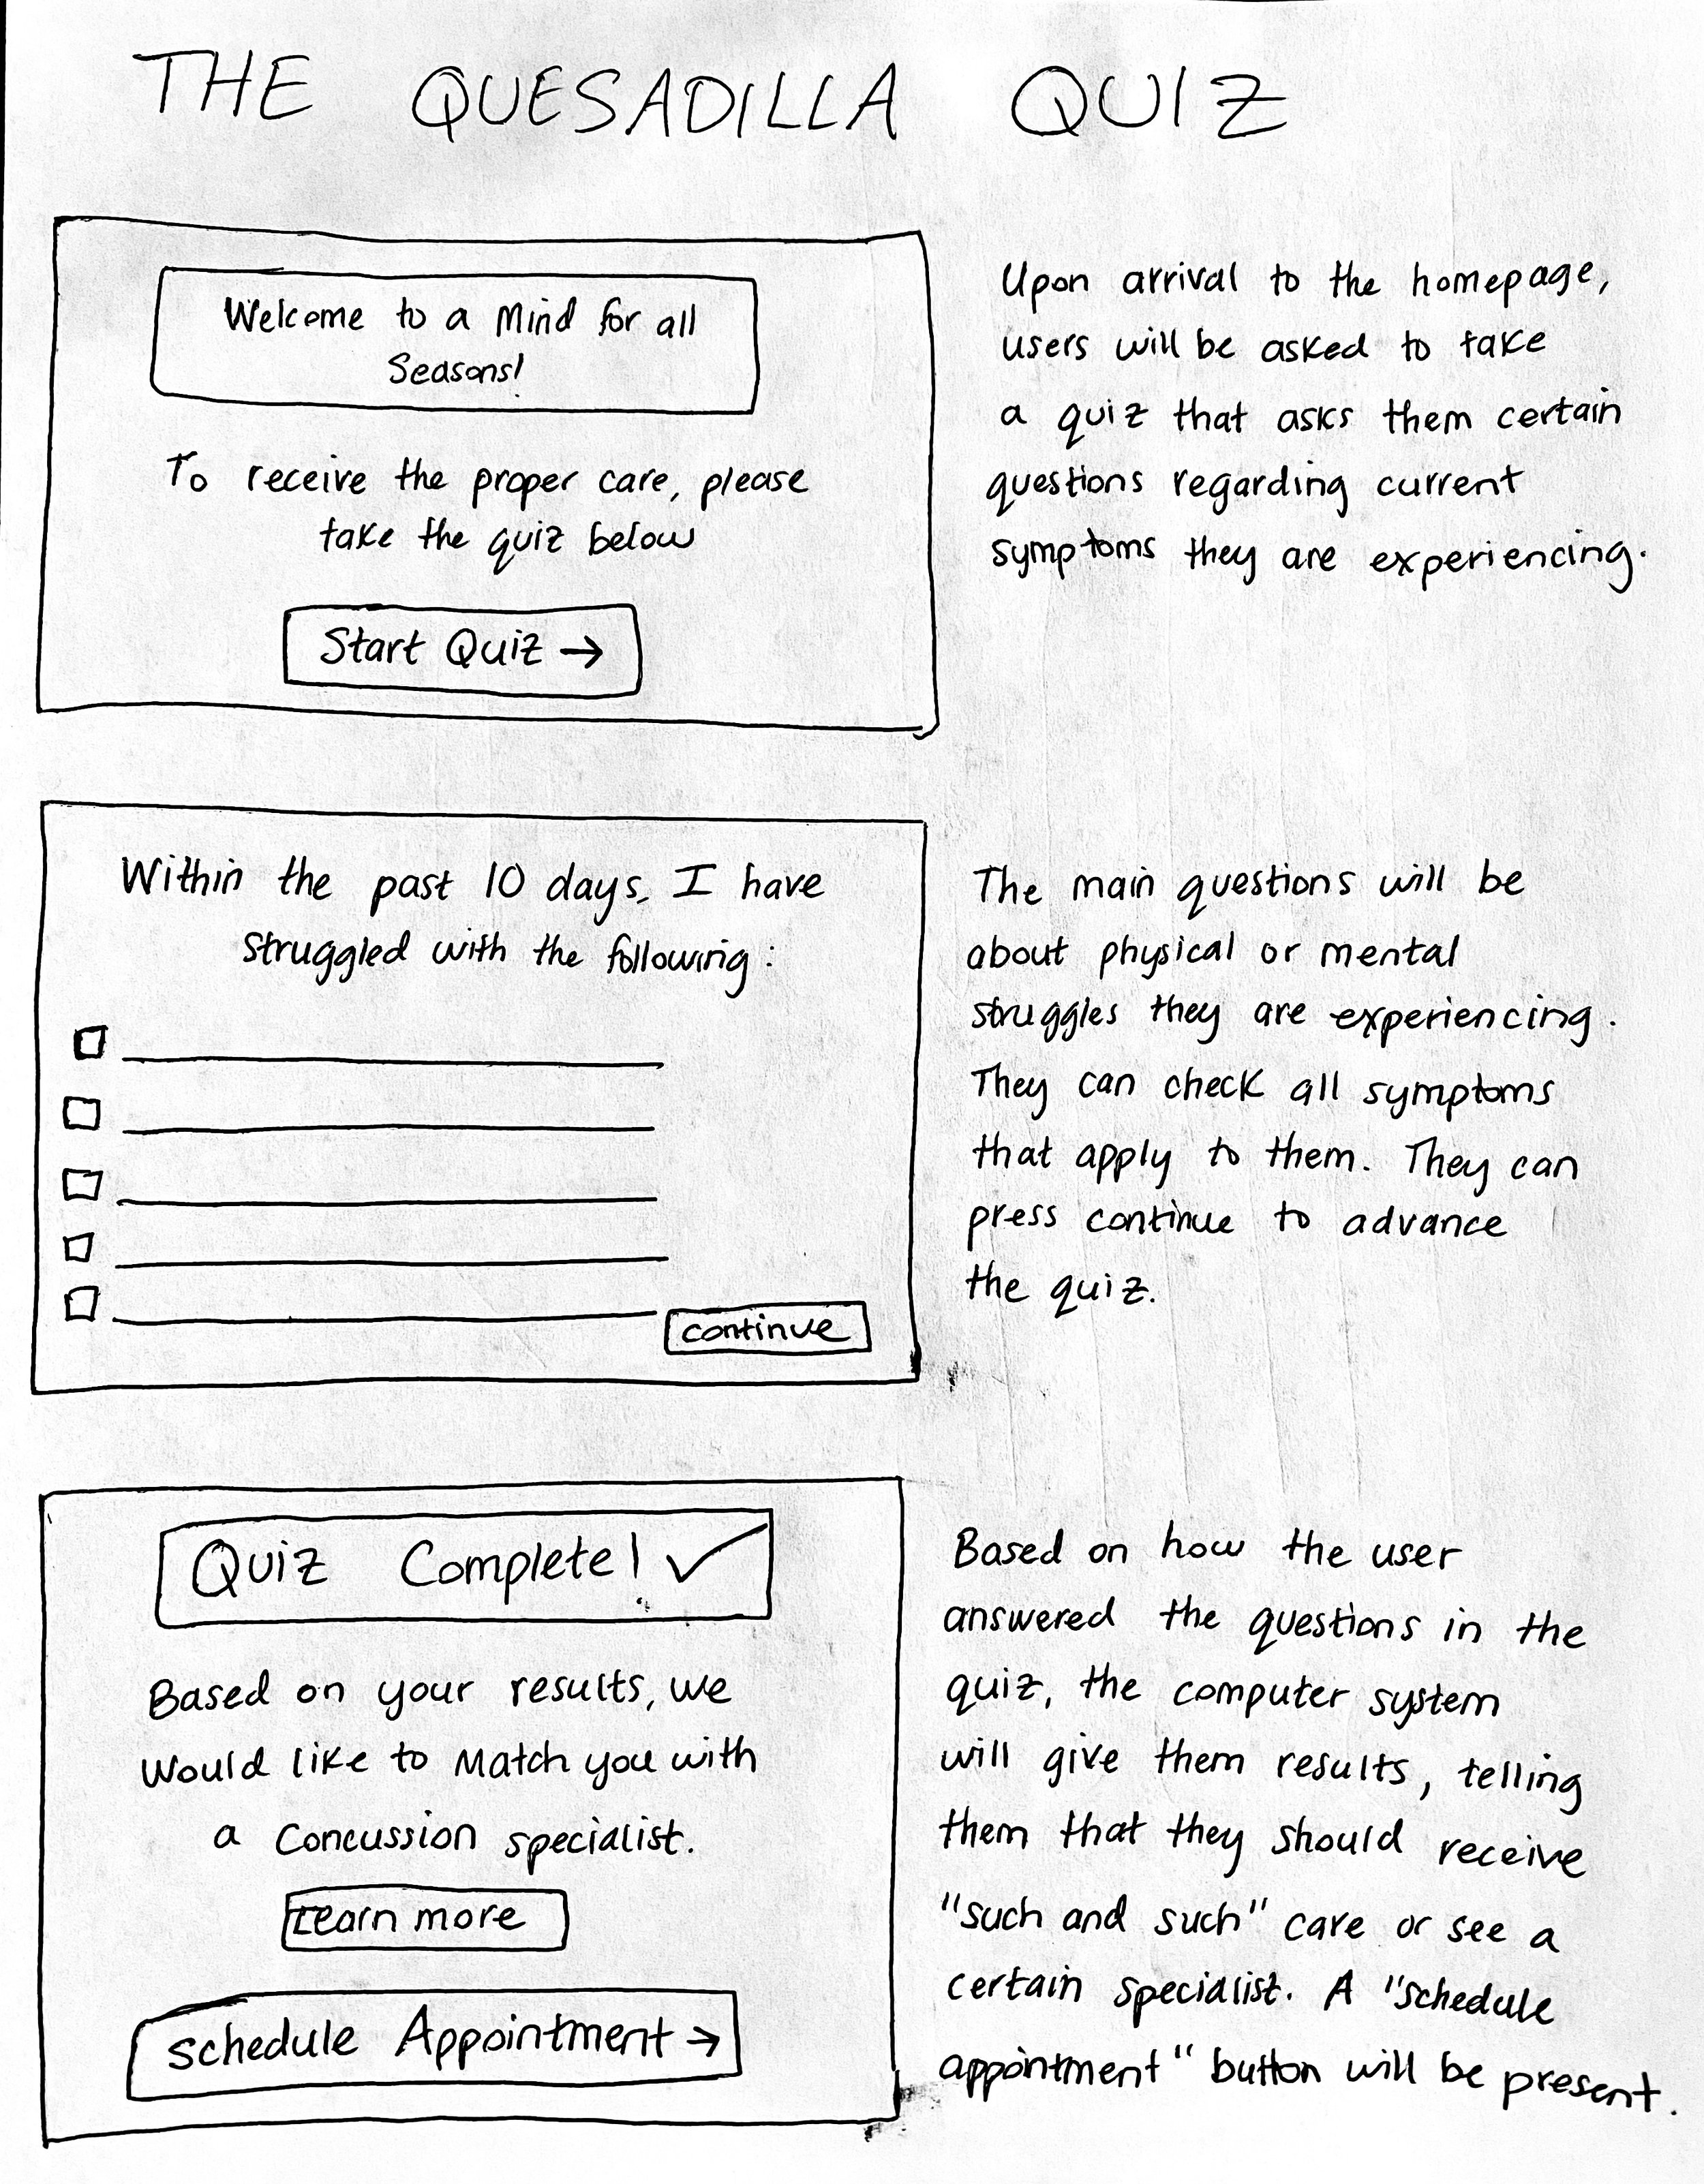 THE QUESADILLA QUIZ
Welcome to a Mind for all
Seasons!
To receive the proper care, please
take the quiz below
Start Quiz →
Upon arrival to the homepage,
users will be asked to take
a quiz that asks them certain
questions regarding current
symptoms they are experiencing.
Within the past 10 days, I have
struggled with the following:
continue
The main questions will be
about physical or mental
struggles they are experiencing.
They can check all symptoms
that apply to them. They can
press continue to advance
the quiz.
Quiz Complete! ✓
Based on your results, we
would like to match you with
a Concussion specialist.
Learn more
Schedule Appointment →
Based on how the user
answered the questions in the
quiz, the computer system
will give them results, telling
them that they should receive
"such and such" care or see a
certain specialist. A "schedule
appointment" button will be present.